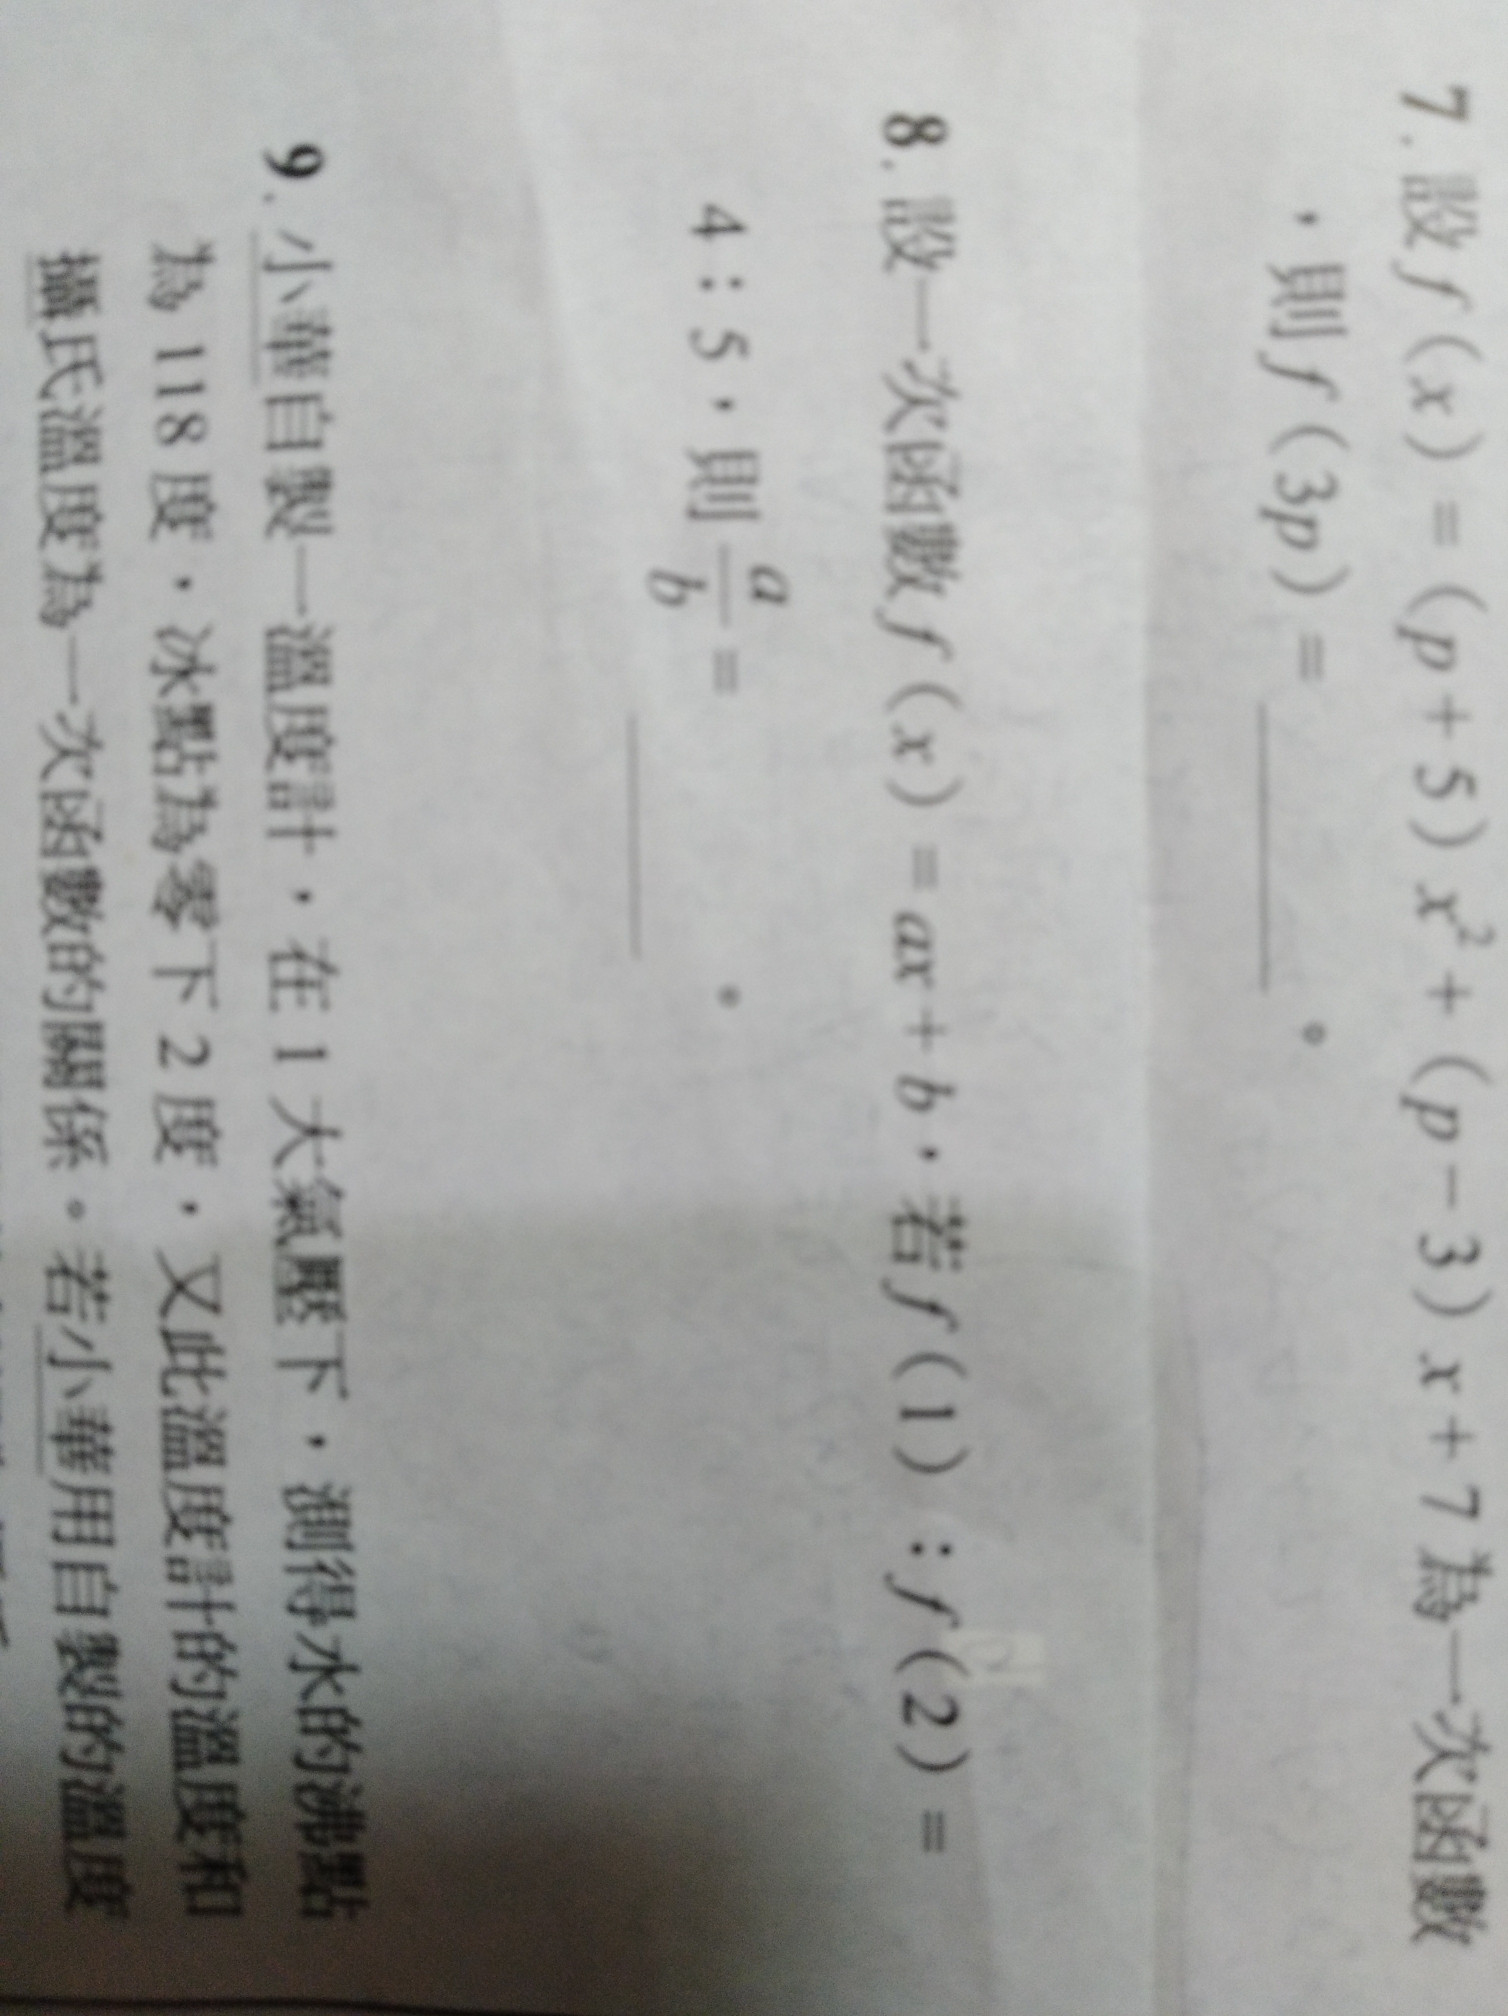 7. 設 f (x) = (p + 5) x² + (p - 3) x + 7 為一次函數
，則 f (3p) = ______。
8. 設一次函數 f (x) = ax + b，若 f (1) : f (2) =
4 : 5，則 a/b = ______。
9. 小華自製一溫度計，在 1 大氣壓下，測得水的沸點
為 118 度，冰點為零下 2 度，又此溫度計的溫度和
攝氏溫度為一次函數的關係。若小華用自製的溫度